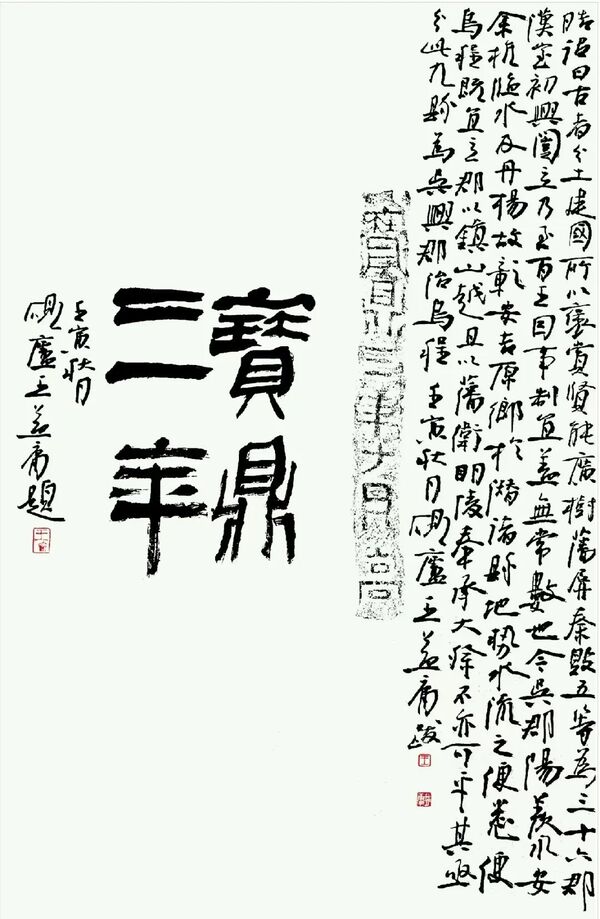 皓詔曰古者分土建國所以褒賞賢能廣樹藩屏秦毀五等為三十六郡
漢室初興闓立乃至百王因事制宜蓋無常數也今吳郡陽羨永安
余杭臨水及丹楊故彰安吉原鄉於潛諸縣地勢水流之便悉便
烏程既宜立郡以鎮山越且以藩衛明陵奉承大祭不亦可乎其亟
分此九縣為吳興郡治烏程 壬寅秋月硯廬王益庸跋
寶鼎三年
寶鼎
三年
壬寅秋月
硯廬王益庸題